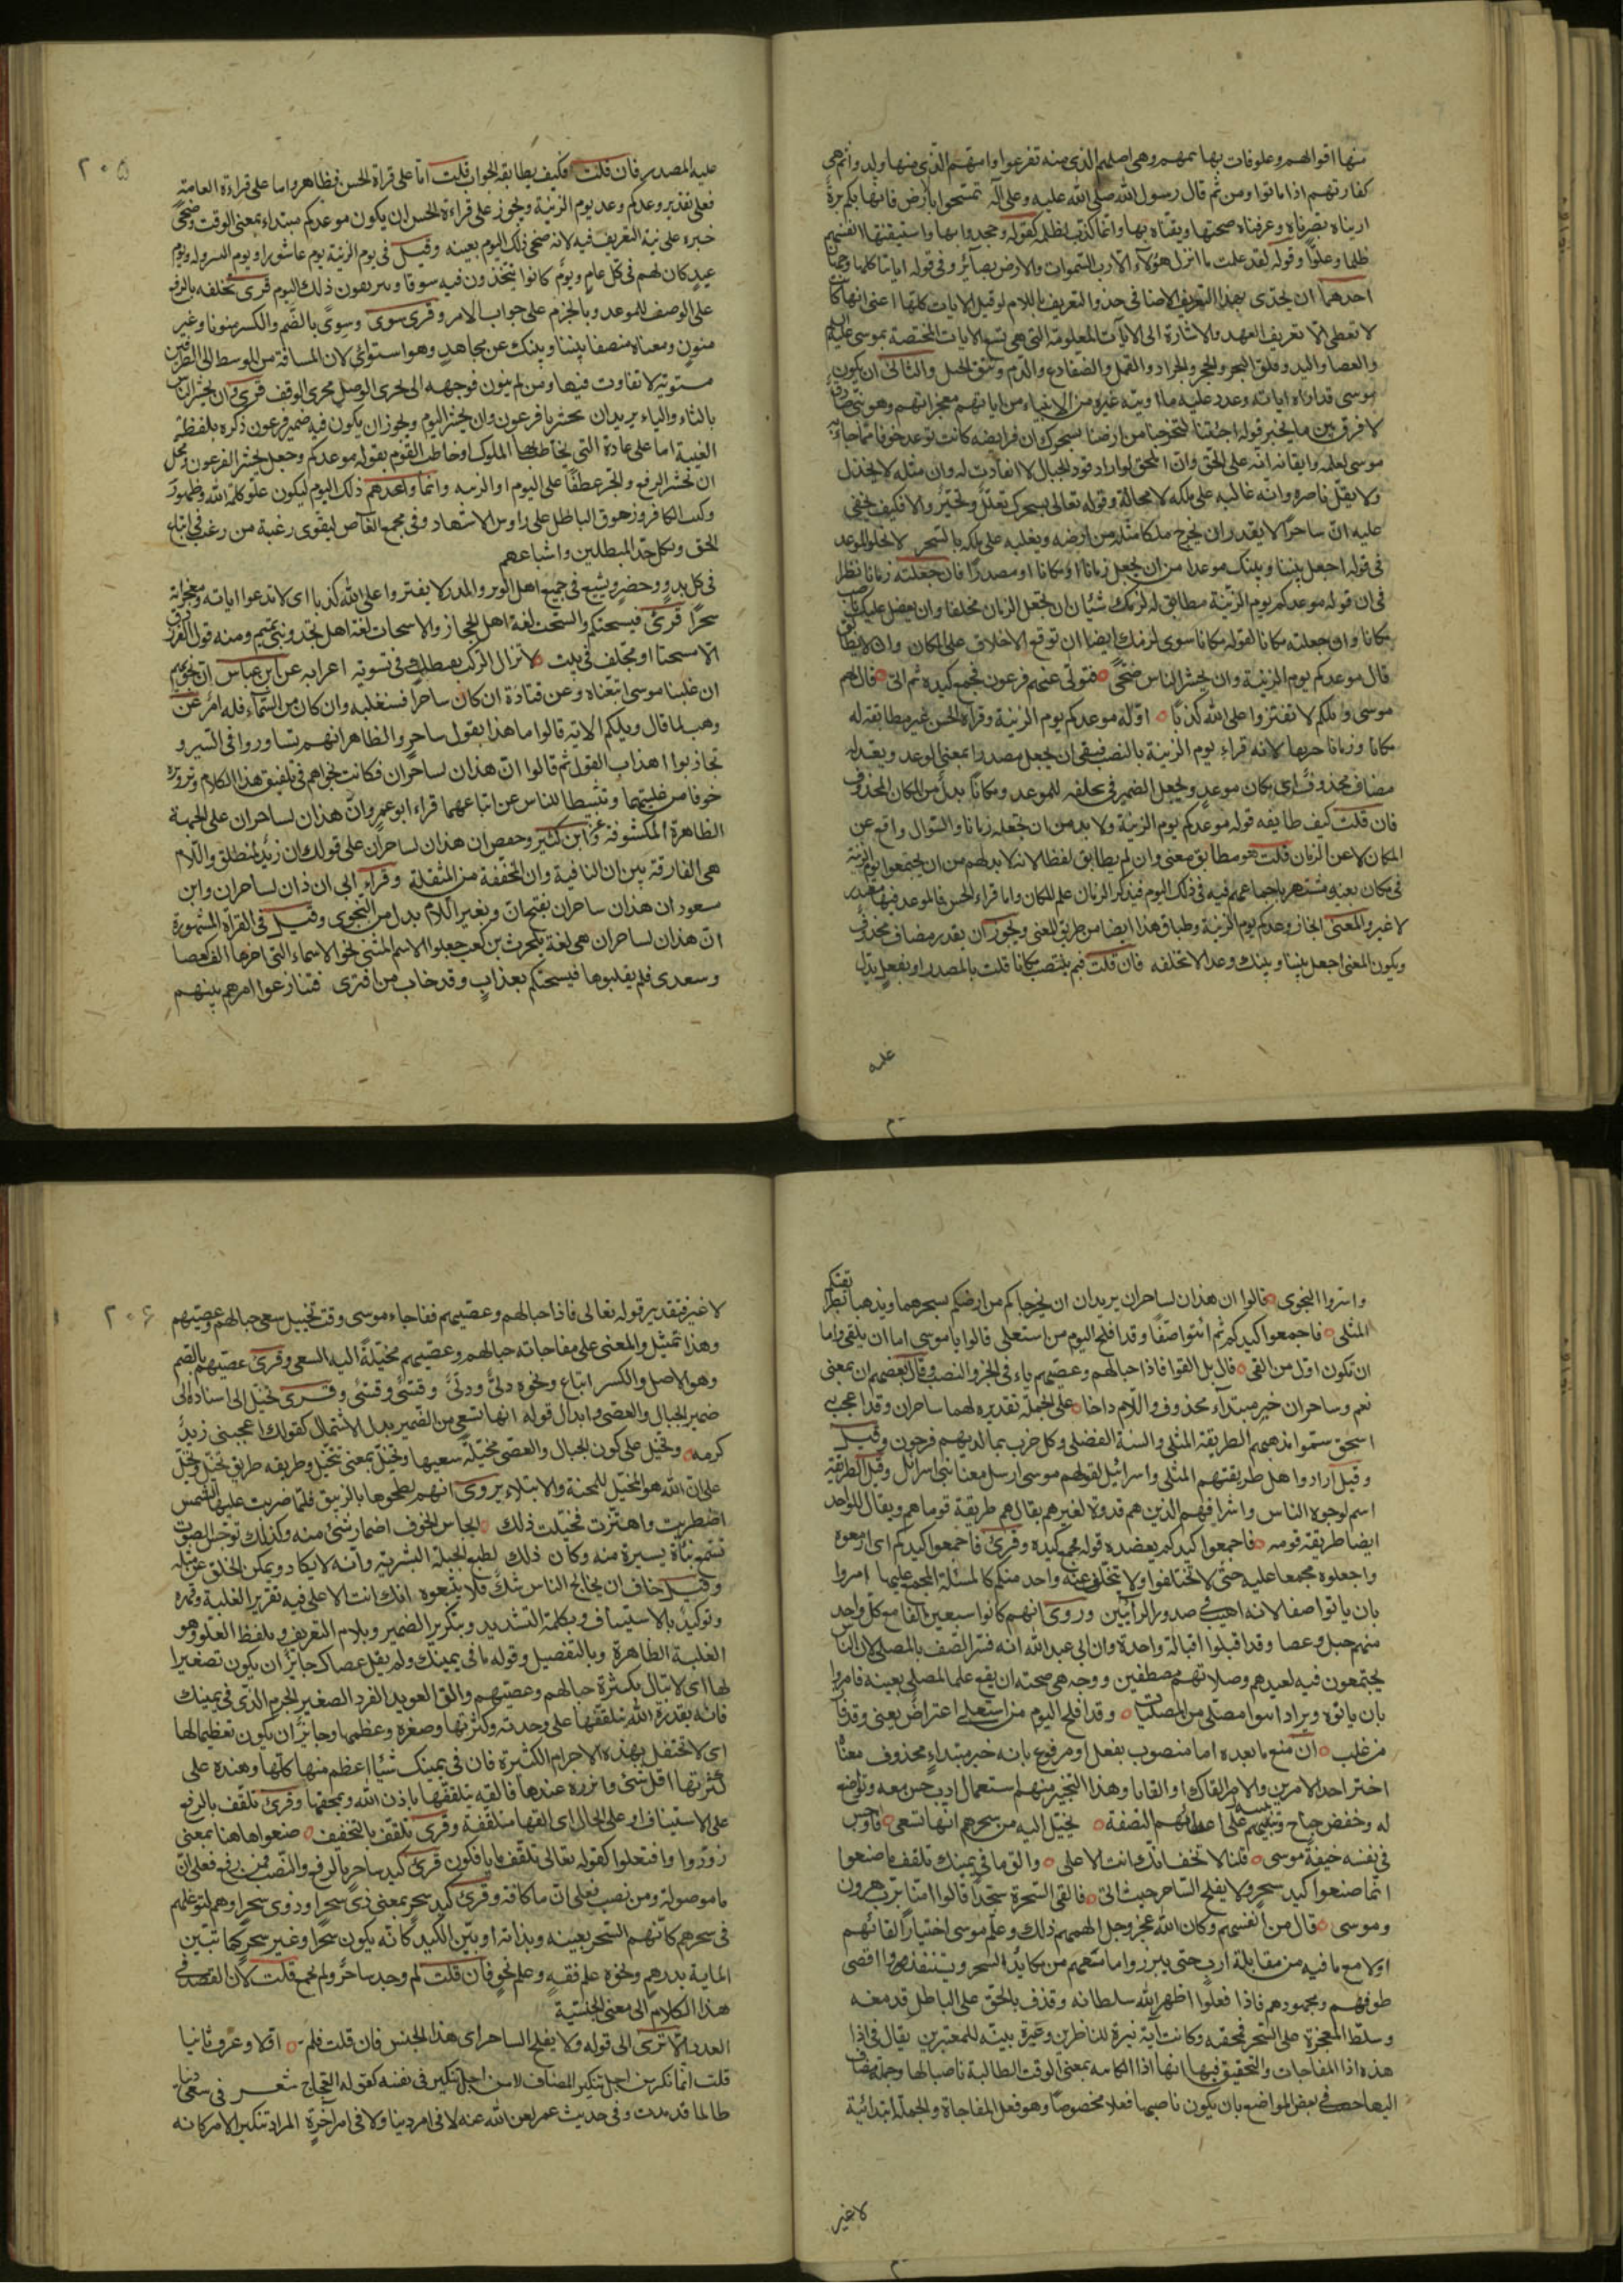 منها اقواتهم وعلوفات بهائمهم وهي اصلهم الذي منه تفرعوا وامتهم التي منها ولدوا ثم هي
كفاتهم اذا ماتوا ومن ثم قال رسول الله صلى الله عليه وعلى آله تمسحوا بالارض فانها بكم برة
اريناه بصرناه وعرفناه صحتها ويقناه بها وانما كذب لظلمه كقوله وجحدوا بها واستيقنتها انفسهم
ظلما وعلوا وقوله لقد علمت ما انزل هؤلاء الا رب السموات والارض بصائر وفي قوله اياتنا كلها وجهان
احدهما ان يحذى بهذا التعريف الاضافي حذو التعريف باللام لو قيل الايات كلها اعني انها كانت
لا تعطي الا تعريف العهد والاشارة الى الايات المعلومة التي هي تسع الايات المختصة بموسى عليه السلام
والعصا واليد وفلق البحر والحجر والجراد والقمل والضفادع والدم ونتق الجبل والثاني ان يكون
موسى قد اراه اياته وعدد عليه ما اوتيه غيره من الانبياء من اياتهم ومعجزاتهم وهو نبي صادق
لا فرق بين ما يخبر قوله اجئتنا لتخرجنا من ارضنا بسحرك ان فرائصه كانت ترعد خوفا مما جاء به
موسى لعلمه وايقانه انه على الحق وان المحق لو اراد قود الجبال لانقادت له وان مثله لا يخذل
ولا يقل ناصره وانه غالبه على ملكه لا محالة وقوله تعالى بسحرك تعلل وتحير والا فكيف يخفى
عليه ان ساحرا لا يقدر ان يخرج ملكا مثله من ارضه ويغلبه على ملكه بالسحر لا يخلو الموعد
في قوله اجعل بيننا وبينك موعدا من ان يجعل زمانا او مكانا او مصدرا فان جعلته زمانا نظرا
في ان قوله موعدكم يوم الزينة مطابق له لزمك شيئان ان تجعل الزمان مخلفا وان يعضل عليك ناصب
مكانا وان جعلته مكانا لقوله مكانا سوى لزمك ايضا ان توقع الاخلاف على المكان وان لا يطابق
قال موعدكم يوم الزينة وان يحشر الناس ضحى فتولى عنهم فرعون فجمع كيده ثم اتى قال لهم
موسى ويلكم لا تفتروا على الله كذبا اوله موعدكم يوم الزينة وقراءة الحسن غير مطابقة له
مكانا وزمانا جميعا لانه قراء يوم الزينة بالنصب فبقي ان يجعل مصدرا بمعنى الوعد ويقدر
مضاف محذوف اي مكان موعد ويجعل الضمير في نخلفه للموعد ومكانا بدل من المكان المحذوف
فان قلت كيف طابقه قوله موعدكم يوم الزينة ولا بد من ان تجعله زمانا والسؤال واقع عن
المكان لا عن الزمان قلت هو مطابق معنى وان لم يطابق لفظا لانه لا بد لهم من ان يجتمعوا يوم الزينة
في مكان بعينه مشتهر باجتماعهم فيه في ذلك اليوم فبذكر الزمان علم المكان واما قراءة الحسن فالموعد فيها مصدر
لا غير والمعنى انجاز وعدكم يوم الزينة وطباق هذا ايضا من طريق المعنى ويجوز ان يقدر مضاف محذوف
ويكون المعنى اجعل بيننا وبينك وعدا لا نخلفه فان قلت فبم ينتصب مكانا قلت بالمصدر او بفعل يدل
عليه
٢٠٥
عليه المصدر فان قلت فكيف يطابقه الجواب قلت اما على قراءة الحسن فظاهر واما على قراءة العامة
فعلى تقدير وعدكم وعد يوم الزينة ويجوز على قراءة الحسن ان يكون موعدكم مبتداء بمعنى الوقت وضحى
خبره على نية التعريف فيه لانه ضحى ذلك اليوم بعينه وقيل في يوم الزينة يوم عاشورا ويوم النيروز ويوم
عيد كان لهم في كل عام ويوم كانوا يتخذون فيه سوقا ويتزينون ذلك اليوم قرئ نخلفه بالرفع
على الوصف للموعد وبالجزم على جواب الامر وقرئ سوى وسوى بالضم والكسر منونا وغير
منون ومعناه منصفا بيننا وبينك عن مجاهد وهو من الاستواء لان المسافة من الوسط الى الطرفين
مستوية لا تفاوت فيها ومن لم ينون فوجهه ان يجري الوصل مجرى الوقف قرئ وان تحشر الناس
بالتاء والياء يريد ان تحشر يا فرعون وان يحشر اليوم ويجوز ان يكون فيه ضمير فرعون ذكره بلفظ
الغيبة اما على عادة التي يخاطب بها الملوك او خاطب القوم بقوله موعدكم وجعل يحشر لفرعون ومحل
ان يحشر الرفع والجر عطفا على اليوم او الزينة وانما واعدهم ذلك اليوم ليكون علو كلمة الله وظهور دينه
وكبت الكافر وزهوق الباطل على رؤس الاشهاد وفي مجمع الغاص ليقوى رغبة من رغب في اتباع
الحق ويكل حد المبطلين واشياعهم
في كل بدو وحضر ويشيع في جميع اهل الوبر والمدر لا تفتروا على الله كذبا اي لا تدعوا اياته ومعجزاته
سحرا قرئ فيسحتكم والسحت لغة اهل الحجاز والاسحات لغة اهل نجد وبني تميم ومنه قول الفرزدق
الا مسحتا او مجلف في بيت لا تزال الركب تصطك في تسوية اعرابه عن ابن عباس ان نجويهم
ان غلبنا موسى اتبعناه وعن قتادة ان كان ساحرا فسنغلبه وان كان من السماء فله امر عن
وهب لما قال ويلكم الاية قالوا ما هذا بقول ساحر والظاهر انهم تشاوروا في السر و
تجاذبوا اهداب القول ثم قالوا ان هذان لساحران فكانت نجواهم في تلفيق هذا الكلام وتزويره
خوفا من غلبتهما وتثبيطا للناس عن اتباعهما قراء ابو عمرو ان هذين لساحران على الجهة
الظاهرة المكشوفة وابن كثير وحفص ان هذان لساحران على قولك ان زيد لمنطلق واللام
هي الفارقة بين ان النافية وان المخففة من الثقيلة وقراء ابي ان ذان لساحران وابن
مسعود ان هذان ساحران بفتح ان وبغير اللام بدل من النجوى وقيل في القراءة المشهورة
ان هذان لساحران هي لغة بلحرث بن كعب جعلوا الاسم المثنى نحو الاسماء التي اخرها الف كعصا
وسعدى فلم يقلبوها فيسحتكم بعذاب وقد خاب من افترى فتنازعوا امرهم بينهم
واسروا النجوى قالوا ان هذان لساحران يريدان ان يخرجاكم من ارضكم بسحرهما ويذهبا بطريقتكم
المثلى فاجمعوا كيدكم ثم ائتوا صفا وقد افلح اليوم من استعلى قالوا يا موسى اما ان تلقي واما
ان نكون اول من القى قال بل القوا فاذا حبالهم وعصيهم ياء في الجر والنصب وقال بعضهم ان بمعنى
نعم وساحران خبر مبتداء محذوف واللام داخلة على الجملة تقديره لهما ساحران وقد اعجب به
اسحق سموا مذهبهم الطريقة المثلى والسنة الفضلى وكل حزب بما لديهم فرحون وقيل
وقيل ارادوا اهل طريقتهم المثلى وهم بنو اسرائيل لقولهم موسى ارسل معنا بني اسرائيل وقيل الطريقة
اسم لوجوه الناس واشرافهم الذين هم قدوة لغيرهم يقال هم طريقة قومهم ويقال للواحد
ايضا طريقة قومه فاجمعوا كيدكم يعضده قوله فجمع كيده وقرئ فاجمعوا كيدكم اي ازمعوه
واجعلوه مجمعا عليه حتى لا تختلفوا ولا يتخلف عنه واحد منكم كالمسئلة المجمع عليها امروا
بان ياتوا صفا لانه اهيب في صدور الرائين وروى انهم كانوا سبعين الفا مع كل واحد
منهم حبل وعصا وقد اقبلوا اقبالة واحدة وان ابي عبد الله انه فسر الصف بالمصلى لان الناس
يجتمعون فيه لعيدهم وصلاتهم مصطفين ووجه صحته ان يقع علما لمصلى بعينه فامروا
بان ياتوه او يراد ائتوا مصلى من المصليات وقد افلح اليوم من استعلى اعتراض يعني وقد فاز
من غلب ان مع ما بعده اما منصوب بفعل او مرفوع بانه خبر مبتداء محذوف معناه
اختر احد الامرين او الامر القاؤك او القاؤنا وهذا التخيير منهم استعمال ادب حسن معه وتواضع
له وخفض جناح وتنبيه على اعطائهم النصفة يخيل اليه من سحرهم انها تسعى فاوجس
في نفسه خيفة موسى قلنا لا تخف انك انت الاعلى والق ما في يمينك تلقف ما صنعوا
انما صنعوا كيد سحر ولا يفلح الساحر حيث اتى فالقي السحرة سجدا قالوا امنا برب هرون
وموسى قال من انفسهم وكان الله عز وجل الهمهم ذلك وعلم موسى اختيار القائهم
اولا مع ما فيه من مقابلة ادب حتى يبرزوا ما معهم من مكايد السحر ويستنفدوا اقصى
طوقهم ومجهودهم فاذا فعلوا اظهر الله سلطانه وقذف بالحق على الباطل فدمغه
وسلط المعجزة على السحر فمحقته وكانت آية نيرة للناظرين وعبرة بينة للمعتبرين يقال في اذا
هذه اذا المفاجات والتحقيق فيها انها اذا الكائنة بمعنى الوقت الطالبة ناصبا لها وجملة تضاف
اليها خصت في بعض المواضع بان يكون ناصبها فعلا مخصوصا وهو فعل المفاجاة والجملة ابتدائية
لا غير
٢٠۶
لا غير فتقدير قوله تعالى فاذا حبالهم وعصيهم ففاجاء موسى وقت تخييل سعي حبالهم وعصيهم
وهذا تمثيل والمعنى على مفاجاته حبالهم وعصيهم مخيلة اليه السعي وقرئ عصيهم بالضم
وهو الاصل والكسر اتباع ونحوه دلي ودلي وقسي وقسي وقرئ تخيل الى اسناده الى
ضمير الحبال والعصي وابدال قوله انها تسعى من الضمير بدل الاشتمال كقولك اعجبني زيد
كرمه وتخيل على كون الحبال والعصي مخيلة سعيها وتخيل بمعنى تتخيل وطريقه طريق تخيل ونخيل
على ان الله هو المخيل للمحنة والابتلاء يروى انهم لطخوها بالزيبق فلما ضربت عليها الشمس
اضطربت واهتزت فخيلت ذلك ايجاس الخوف اضمار شئ منه وكذلك توجس الصوت
تسمع نبأة يسيرة منه وكان ذلك لطبع الجبلة البشرية وانه لا يكاد يمكن الخلو عن مثله
وقيل خاف ان يخالج الناس شك فلا يتبعوه انك انت الاعلى فيه تقرير الغلبة وقهره
وتوكيد بالاستيناف وبكلمة التشديد وبتكرير الضمير وبلام التعريف وبلفظ العلو وهو
الغلبة الظاهرة وبالتفضيل وقوله ما في يمينك ولم يقل عصاك جائز ان يكون تصغيرا
لها اي لا تبال بكثرة حبالهم وعصيهم والق العويد الفرد الصغير الجرم الذي في يمينك
فانه بقدرة الله يتلقفها على وحدته وكثرتها وصغره وعظمها وجائز ان يكون تعظيما لها
اي لا تحتفل بهذه الاجرام الكثيرة فان في يمينك شيئا اعظم منها كلها وهذه على
كثرتها اقل شئ وانزره عندها فالقه يتلقفها باذن الله ويمحقها وقرئ تلقف بالرفع
على الاستيناف او على الحال اي القها متلقفة وقرئ تلقف بالتخفيف صنعوا هاهنا بمعنى
زوروا وافتعلوا كقوله تعالى تلقف ما يافكون قرئ كيد ساحر بالرفع والنصب فمن رفع فعلى ان
ما موصولة ومن نصب فعلى ان ما كافة وقرئ كيد سحر بمعنى ذي سحر او ذوي سحر او هم لتوغلهم
في سحرهم كانهم السحر بعينه وبذاته او بين الكيد لانه يكون سحرا وغير سحر كما تبين
الماية بدرهم ونحوه علم فقه وعلم نحو فان قلت لم وحد ساحر ولم يجمع قلت لان القصد في
هذا الكلام الى معنى الجنسية
العدد الا ترى الى قوله ولا يفلح الساحر اي هذا الجنس فان قلت فلم نكر اولا وعرف ثانيا
قلت انما نكر من اجل تنكير المضاف لا من اجل تنكير في نفسه كقوله العجاج شعر في سعي دنيا
طالما قد مدت وفي حديث عمر رضي الله عنه لا في امر دنيا ولا في امر آخرة المراد تنكير الامر كانه